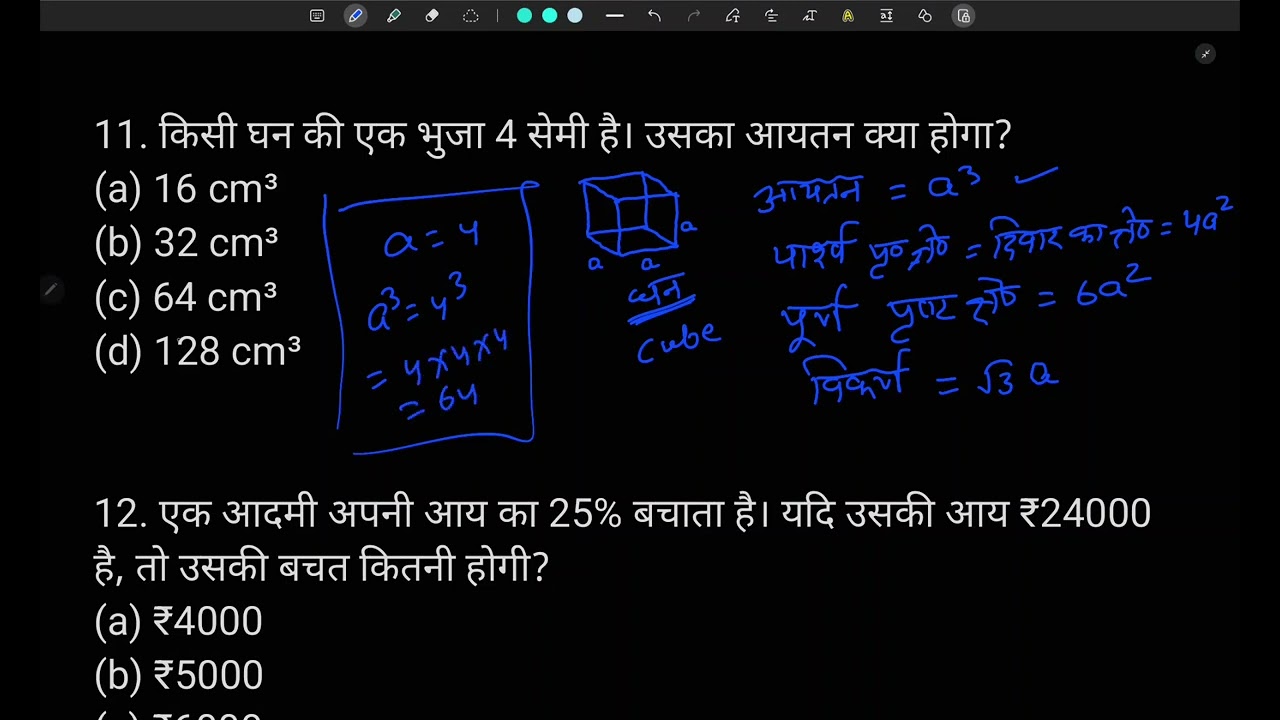 11. किसी घन की एक भुजा 4 सेमी है। उसका आयतन क्या होगा?
(a) 16 cm³
(b) 32 cm³
(c) 64 cm³
(d) 128 cm³
a = 4
a³ = 4³
= 4×4×4
= 64
a
a a
घन
cube
आयतन = a³ ✓
पार्श्व पृ० क्षे० = दिवार का क्षे० = 4a²
पूर्ण पृष्ठ क्षे० = 6a²
विकर्ण = √3 a
12. एक आदमी अपनी आय का 25% बचाता है। यदि उसकी आय ₹24000
है, तो उसकी बचत कितनी होगी?
(a) ₹4000
(b) ₹5000